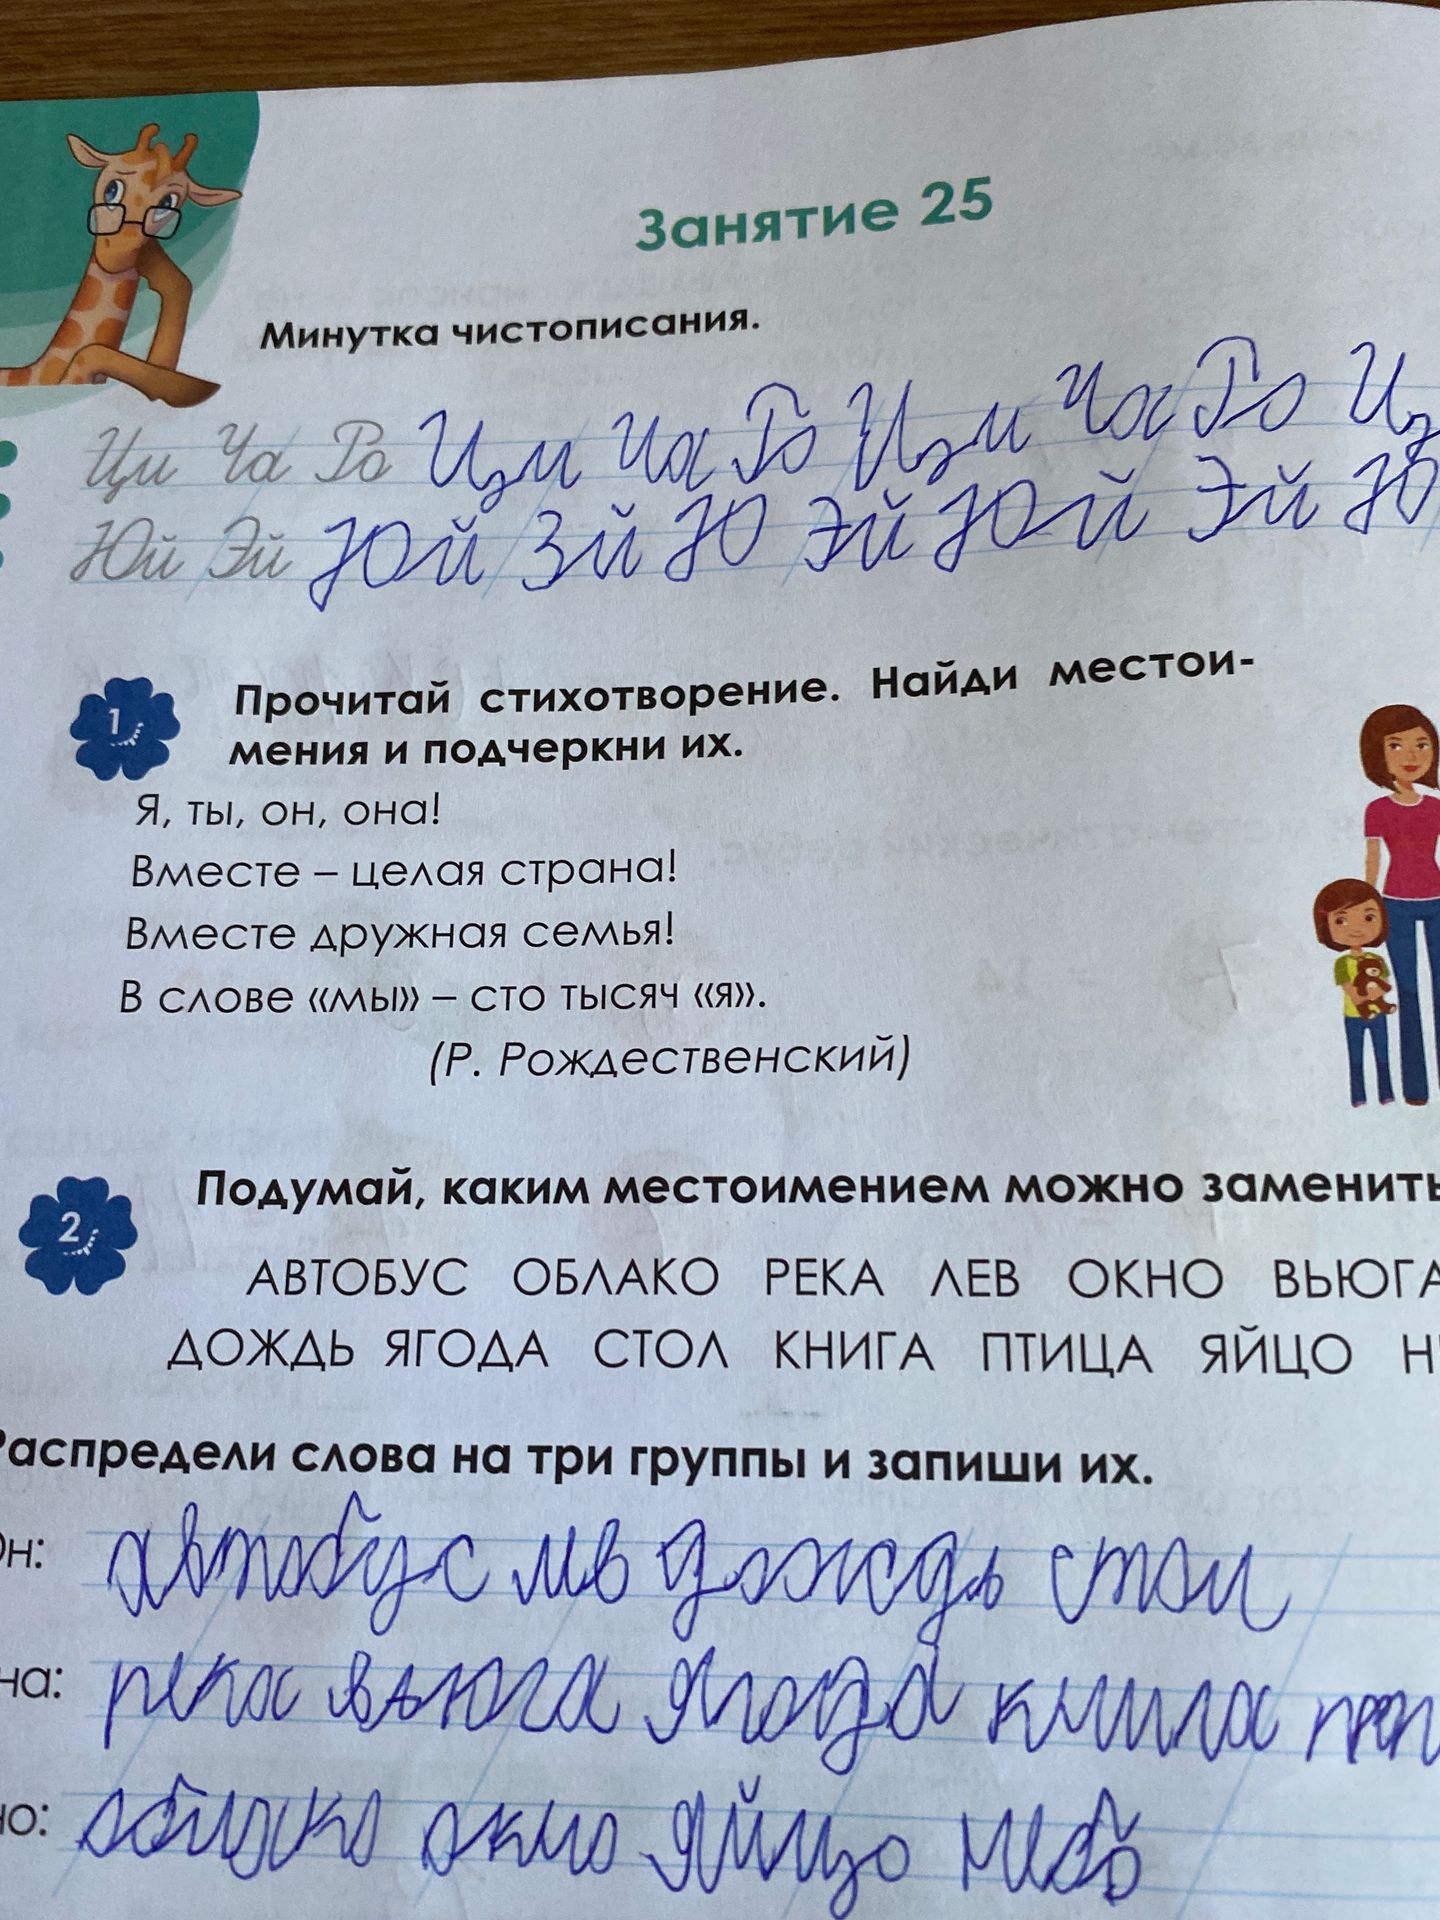 Занятие 25
Минутка чистописания.
Ци Ча Ро Ци Ча Ро Ци Ча Ро Ц
Юй Эй Юй Эй Ю Эй Юй Эй Ю
1 Прочитай стихотворение. Найди местои-
мения и подчеркни их.
Я, ты, он, она!
Вместе – целая страна!
Вместе дружная семья!
В слове «мы» – сто тысяч «я».
(Р. Рождественский)
2 Подумай, каким местоимением можно заменить
АВТОБУС ОБЛАКО РЕКА ЛЕВ ОКНО ВЬЮГА
ДОЖДЬ ЯГОДА СТОЛ КНИГА ПТИЦА ЯЙЦО Н
Распредели слова на три группы и запиши их.
Он: автобус лев дождь стол
на: река вьюга ягода книга
но: облако окно яйцо небо